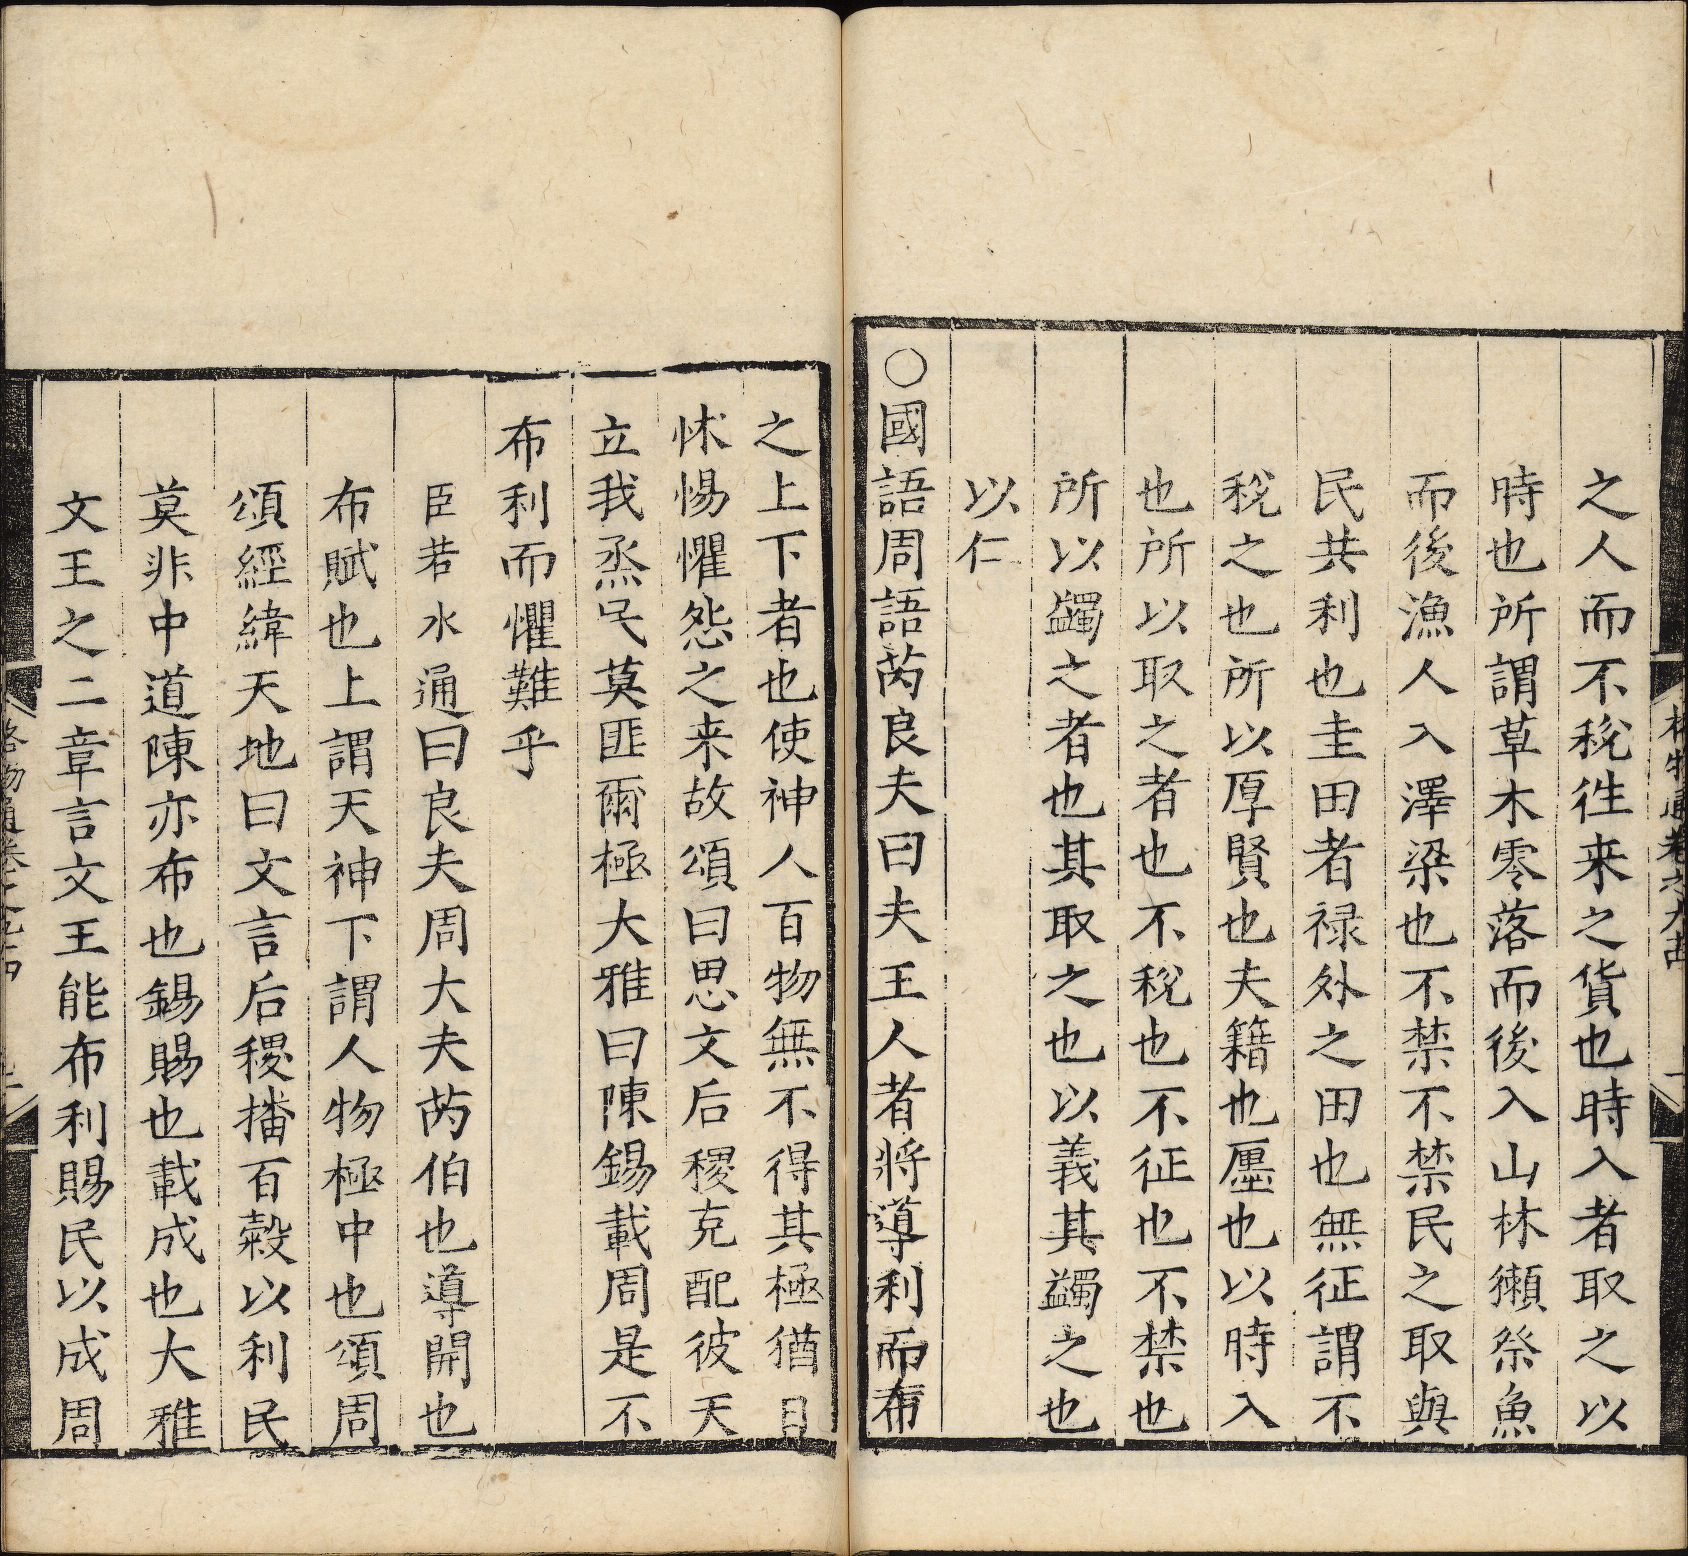 之人而不稅徃来之貨也時入者取之以
時也所謂草木零落而後入山林獺祭魚
而後漁人入澤梁也不禁不禁民之取與
民共利也圭田者禄外之田也無征謂不
稅之也所以厚賢也夫籍也㕓也以時入
也所以取之者也不稅也不征也不禁也
所以蠲之者也其取之也以義其蠲之也
以仁
○國語周語芮良夫曰夫王人者將導利而布
之上下者也使神人百物無不得其極猶日
怵惕懼怨之来故頌曰思文后稷克配彼天
立我烝民莫匪爾極大雅曰陳錫載周是不
布利而懼難乎
臣若水通曰良夫周大夫芮伯也導開也
布賦也上謂天神下謂人物極中也頌周
頌經緯天地曰文言后稷播百糓以利民
莫非中道陳亦布也錫賜也載成也大雅
文王之二章言文王能布利賜民以成周